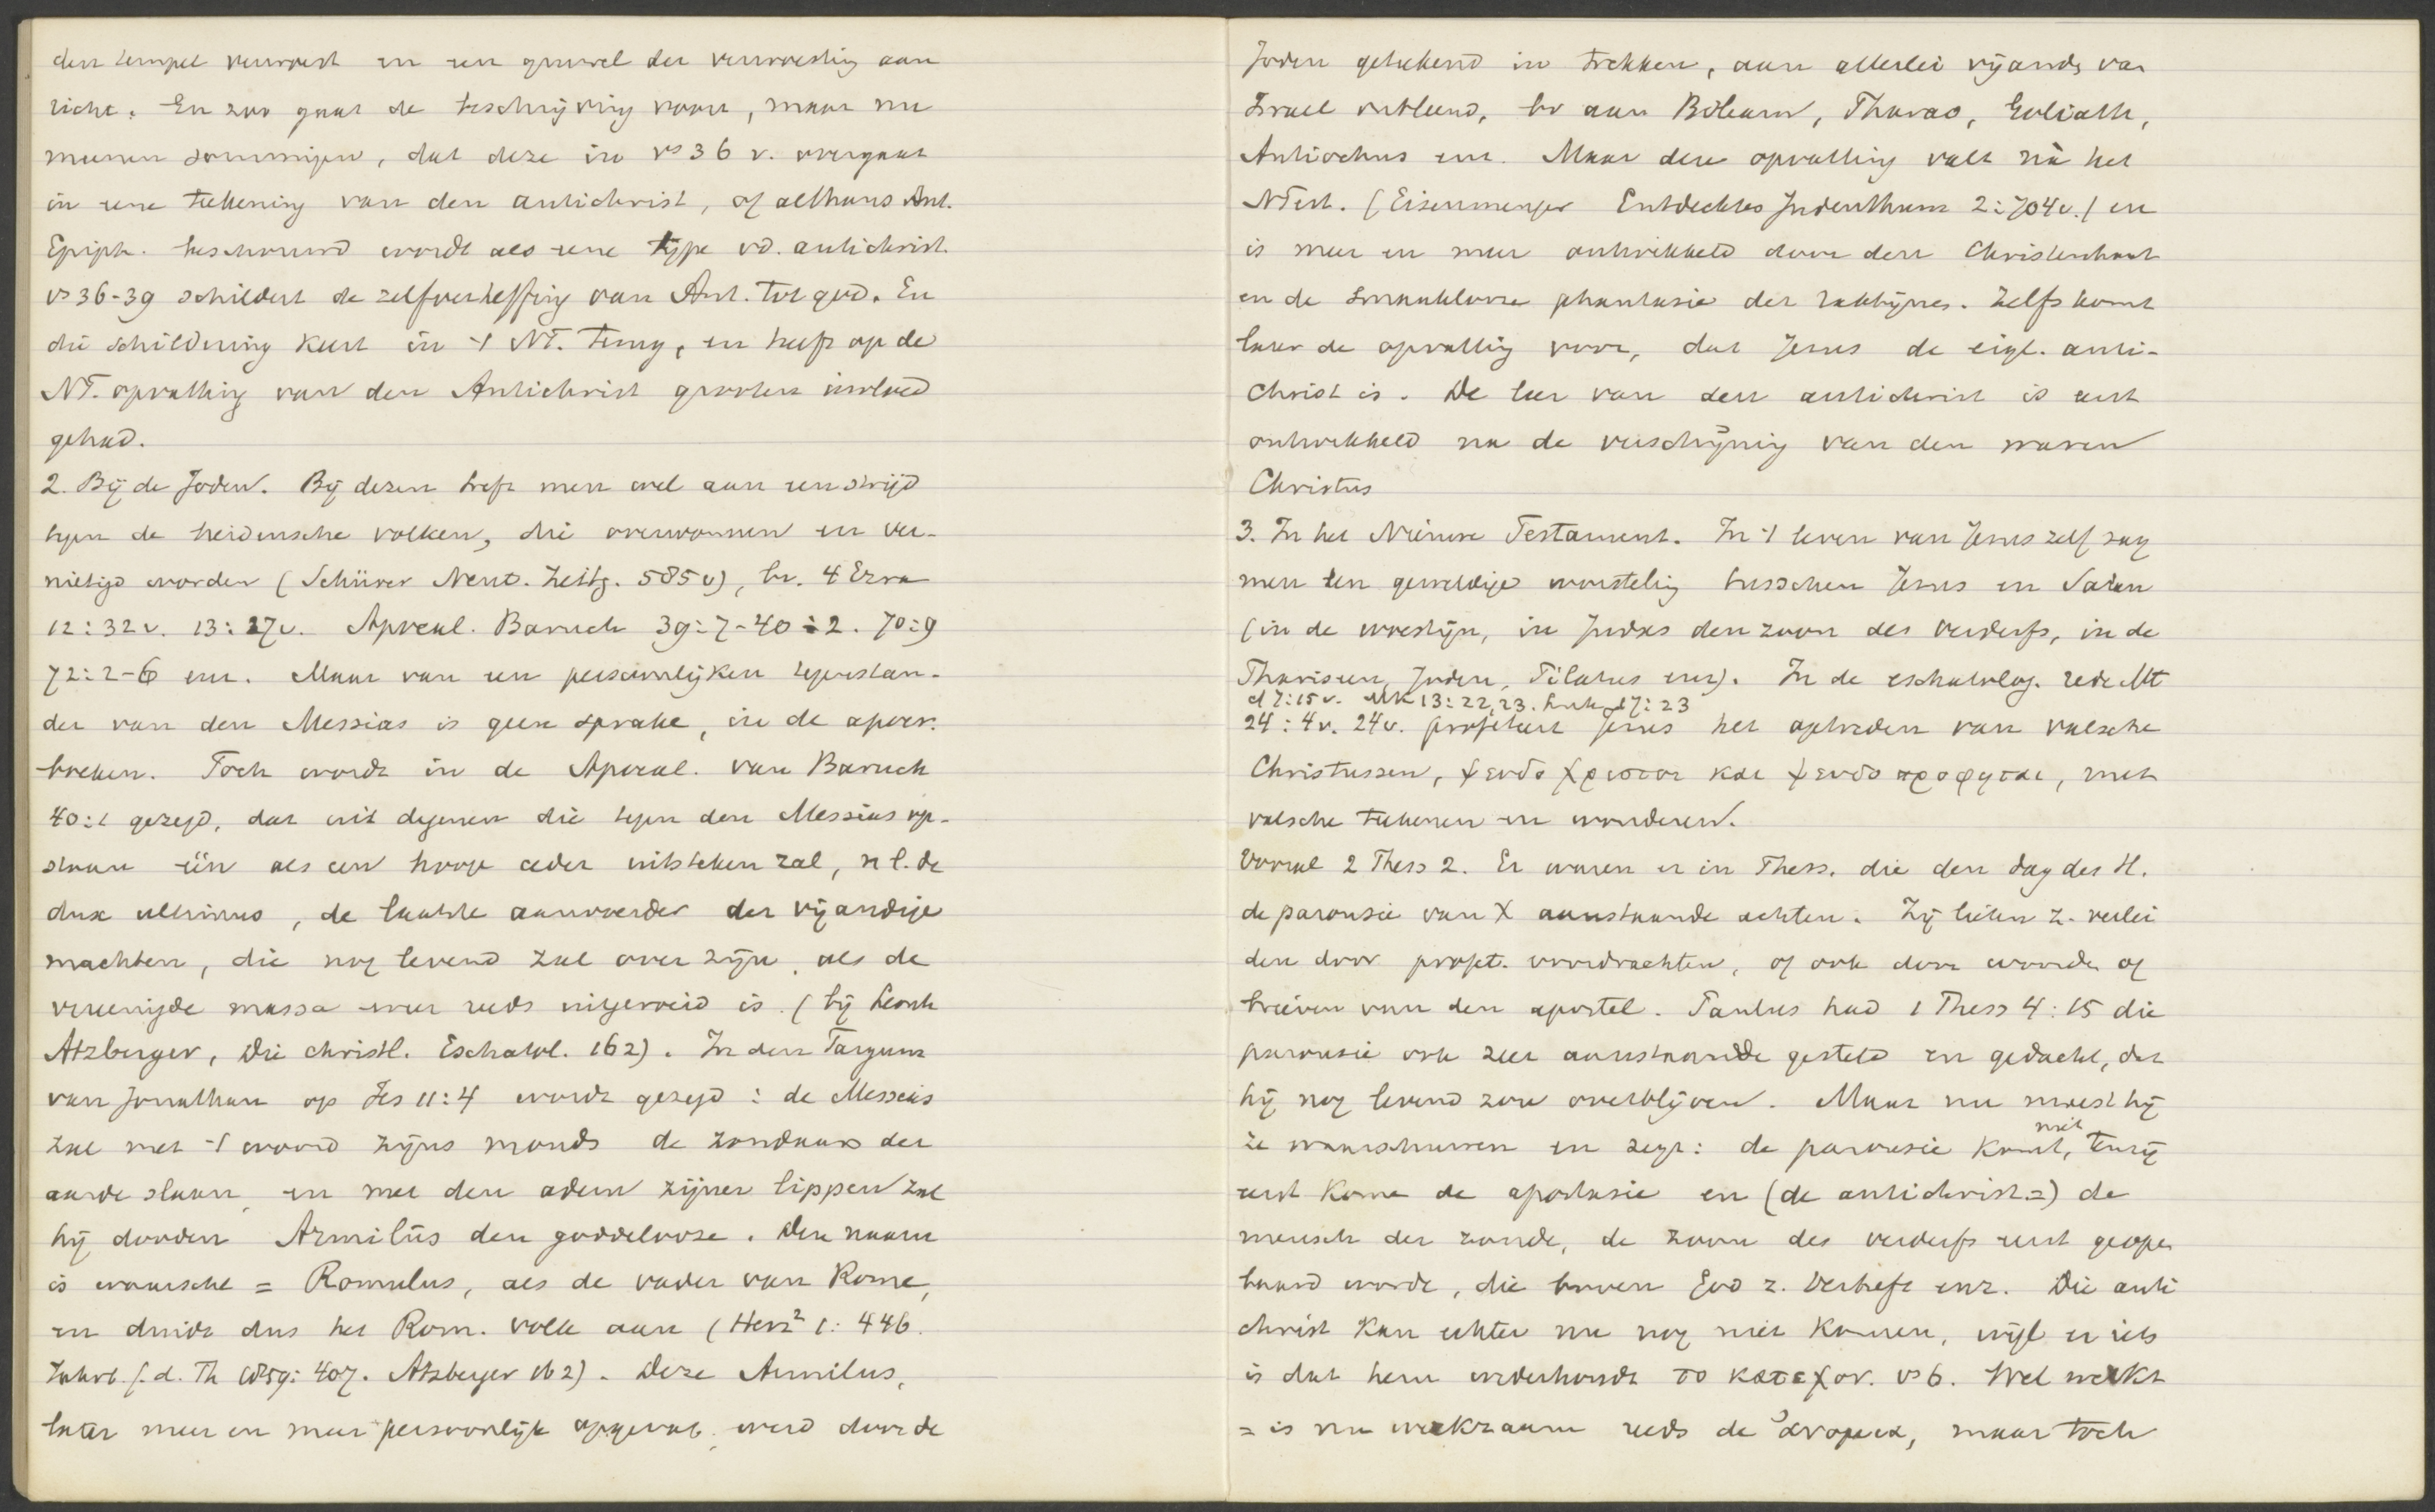 den tempel verwoest en een gruwel der verwoesting aan
richt. En zoo gaat de beschrijving voort, maar nu
meenen sommigen, dat deze in vs 36 v. overgaat
in eene teekening van den antichrist, of althans Ant.
Epiph. beschouwd wordt als eene type v.d. antichrist.
vs 36-39 schildert de zelfverheffing van Ant. tot god. En
die schildering keert in 't NT. terug, en heeft op de
NT. opvatting van den Antichrist grooten invloed
gehad.
2. Bij de Joden. Bij dezen treft men wel aan een strijd
tegen de heidensche volken, die overwonnen en ver-
nietigd worden (Schürer Neut. Zeitg. 585 v), bv. 4 Ezra
12:32 v. 13:27 v. Apocal. Baruch 39:7-40:2. 70:9
72:2-6 enz. Maar van een persoonlijken tegenstan-
der van den Messias is geen sprake, in de apocr.
boeken. Toch wordt in de Apocal. van Baruch
40:1 gezegd, dat uit degenen die tegen den Messias op-
staan één als een hooge ceder uitsteken zal, nl. de
dux ultimus, de laatste aanvoerder der vijandige
machten, die nog levend zal over zijn, als de
vereenigde massa weer reeds uitgeroeid is. (bij Leonh
Atzberger, Die christl. Eschatol. 162). In den Targum
van Jonathan op Jes 11:4 wordt gezegd: de Messias
zal met 't woord zijns monds de zondaars der
aarde slaan, en met den adem zijner lippen zal
hij dooden Armilûs den goddelooze. Deze naam
is waarsch. = Romulus, als de vader van Rome,
en duidt dus het Rom. volk aan (Herz² 1:446.
Jahrb. f. d. Th 1859:407. Atzberger 162). Deze Armilus,
later meer en meer persoonlijk opgevat, werd door de
Joden geteekend in trekken, aan allerlei vijands van
Israel ontleend, bv aan Bileam, Pharao, Goliath,
Antiochus enz. Maar deze opvatting valt nà het
NTest. (Eisenmenger Entdecktes Judenthum 2:704 v.) en
is meer en meer ontwikkeld door den Christenhaat
en de smaaklooze phantasie der rabbijnes. Zelfs komt
later de opvatting voor, dat Jezus de eigl. anti-
christ is. De leer van den antichrist is eerst
ontwikkeld na de verschijning van den waren
Christus
3. In het Nieuwe Testament. In 't leven van Jezus zelf zag
men een geweldige worsteling tusschen Jezus en Satan
(in de woestijn, in Judas den zoon des verderfs, in de
Pharizeen, Joden, Pilatus enz). In de eschatolog. rede Mt
d 7:15 v. Mk 13:22,23. Luk 17:23
24:4v. 24v. profeteert Jezus het optreden van valsche
Christussen, ψευδοχριστοι και ψευδοπροφηται, met
valsche teekenen en wonderen.
Vooral 2 Thess 2. Er waren er in Thess. die den dag des H.
de parousie van X aanstaande achten. Zij lieten z. verlei
den door profet. voordrachten, of ook door woorden of
brieven van den apostel. Paulus had 1 Thess 4:15 die
parousie ook zeer aanstaande gesteld en gedacht, dat
hij nog levend zou overblijven. Maar nu moest hij
ze waarschuwen en zegt: de parousie komt niet, tenzij
eerst kome de apostasie en (de antichrist =) de
mensch der zonde, de zoon des verderfs eerst geopen
baard worde, die boven God z. verheft enz. Die anti
christ kan echter nu nog niet komen, wijl er iets
is dat hem wederhoudt το κατεχον. vs 6. Wel werkt
= is nu werkzaam reeds de ἀνομια, maar toch